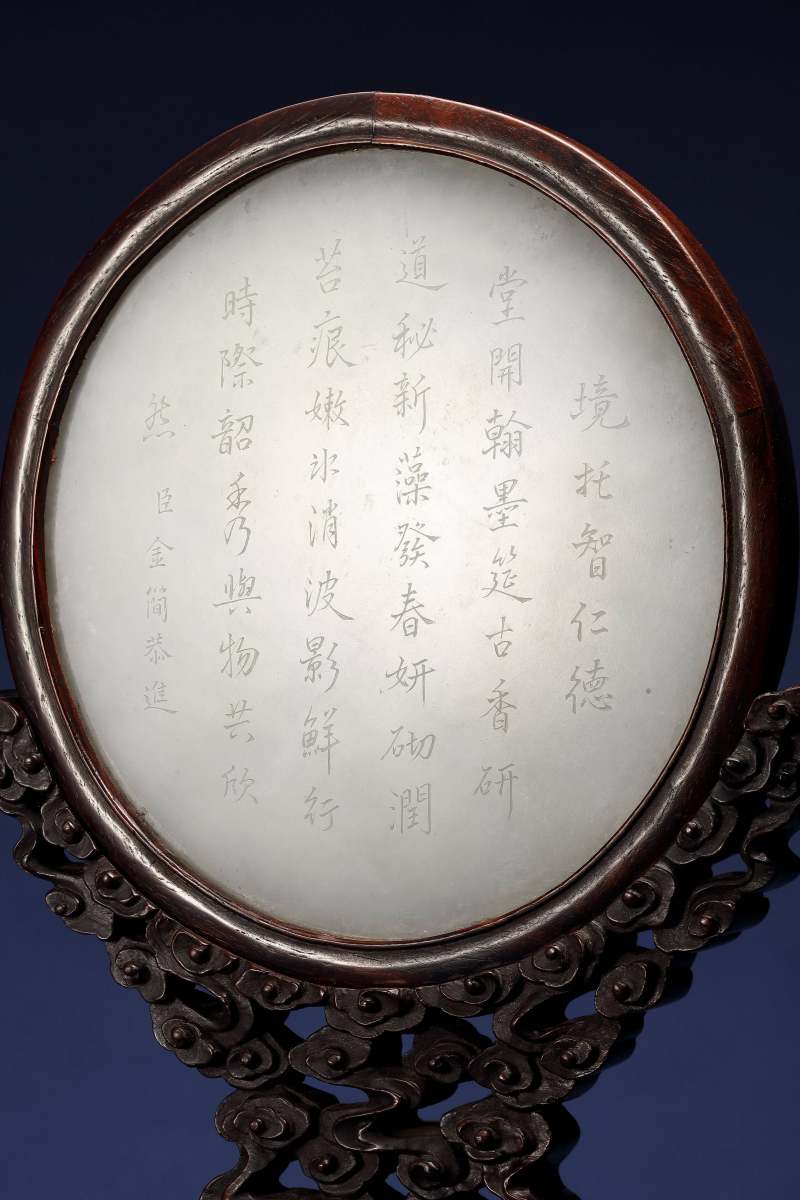 境托智仁德
堂開翰墨筵古香研
道秘新藻發春妍砌潤
苔痕嫩氷消波影鮮行
時際韶秀與物共欣
然
臣金簡恭進